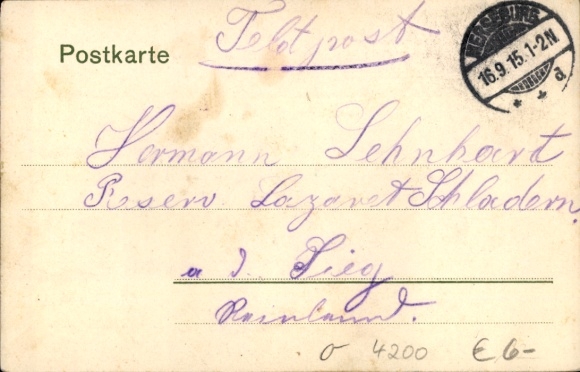 Postkarte
Feldpost
MERSEBURG
16.9.15.1-2N
* * d
Hermann Lehnhart
Reserv. Lazaret Schladern.
a d. Sieg
Reinland.
σ 4200 € 6-